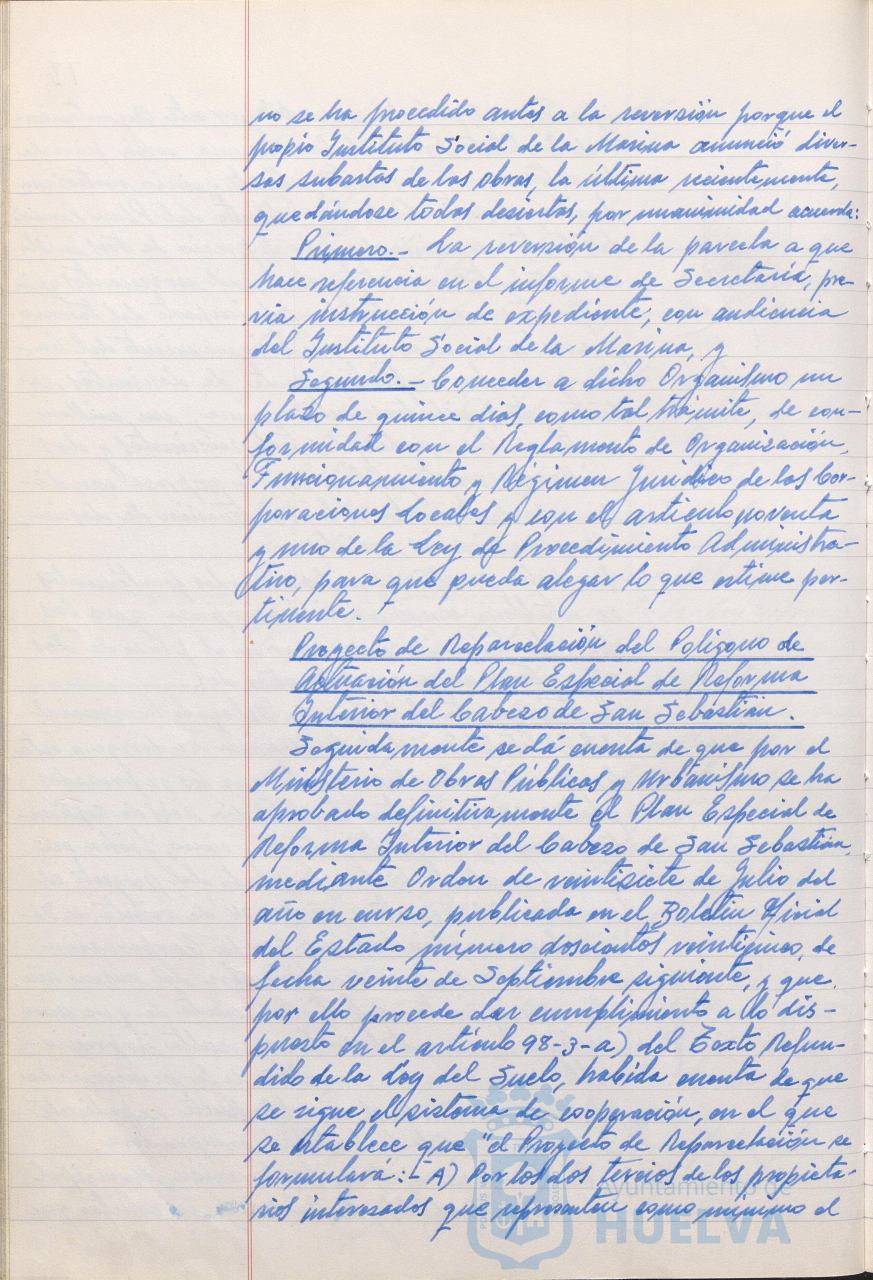 no se ha procedido antes a la reversión porque el
propio Instituto Social de la Marina anunció diver-
sas subastas de las obras, la última recientemente,
quedándose todas desiertas, por unanimidad acuerda:
Primero.- La reversión de la parcela a que
hace referencia en el informe de Secretaría, pre-
via instrucción de expediente, con audiencia
del Instituto Social de la Marina, y
Segundo.- Conceder a dicho Organismo un
plazo de quince días, como tal trámite, de con-
formidad con el Reglamento de Organización,
Funcionamiento y Régimen Jurídico de las Cor-
poraciones Locales y con el artículo noventa
y uno de la Ley de Procedimiento Administra-
tivo, para que pueda alegar lo que estime per-
tinente.
Proyecto de Reparcelación del Polígono de
Actuación del Plan Especial de Reforma
Interior del Cabezo de San Sebastián.
Seguidamente se dá cuenta de que por el
Ministerio de Obras Públicas y Urbanismo se ha
aprobado definitivamente el Plan Especial de
Reforma Interior del Cabezo de San Sebastián,
mediante Orden de veintisiete de Julio del
año en curso, publicada en el Boletín Oficial
del Estado número doscientos veinticinco, de
fecha veinte de Septiembre siguiente, y que
por ello procede dar cumplimiento a lo dis-
puesto en el artículo 98-3-a) del Texto Refun-
dido de la Ley del Suelo, habida cuenta de que
se sigue el sistema de cooperación, en el que
se establece que "el Proyecto de Reparcelación se
formulará:- A) Por los dos tercios de los propieta-
rios interesados que representen como mínimo el
Ayuntamiento de
HUELVA